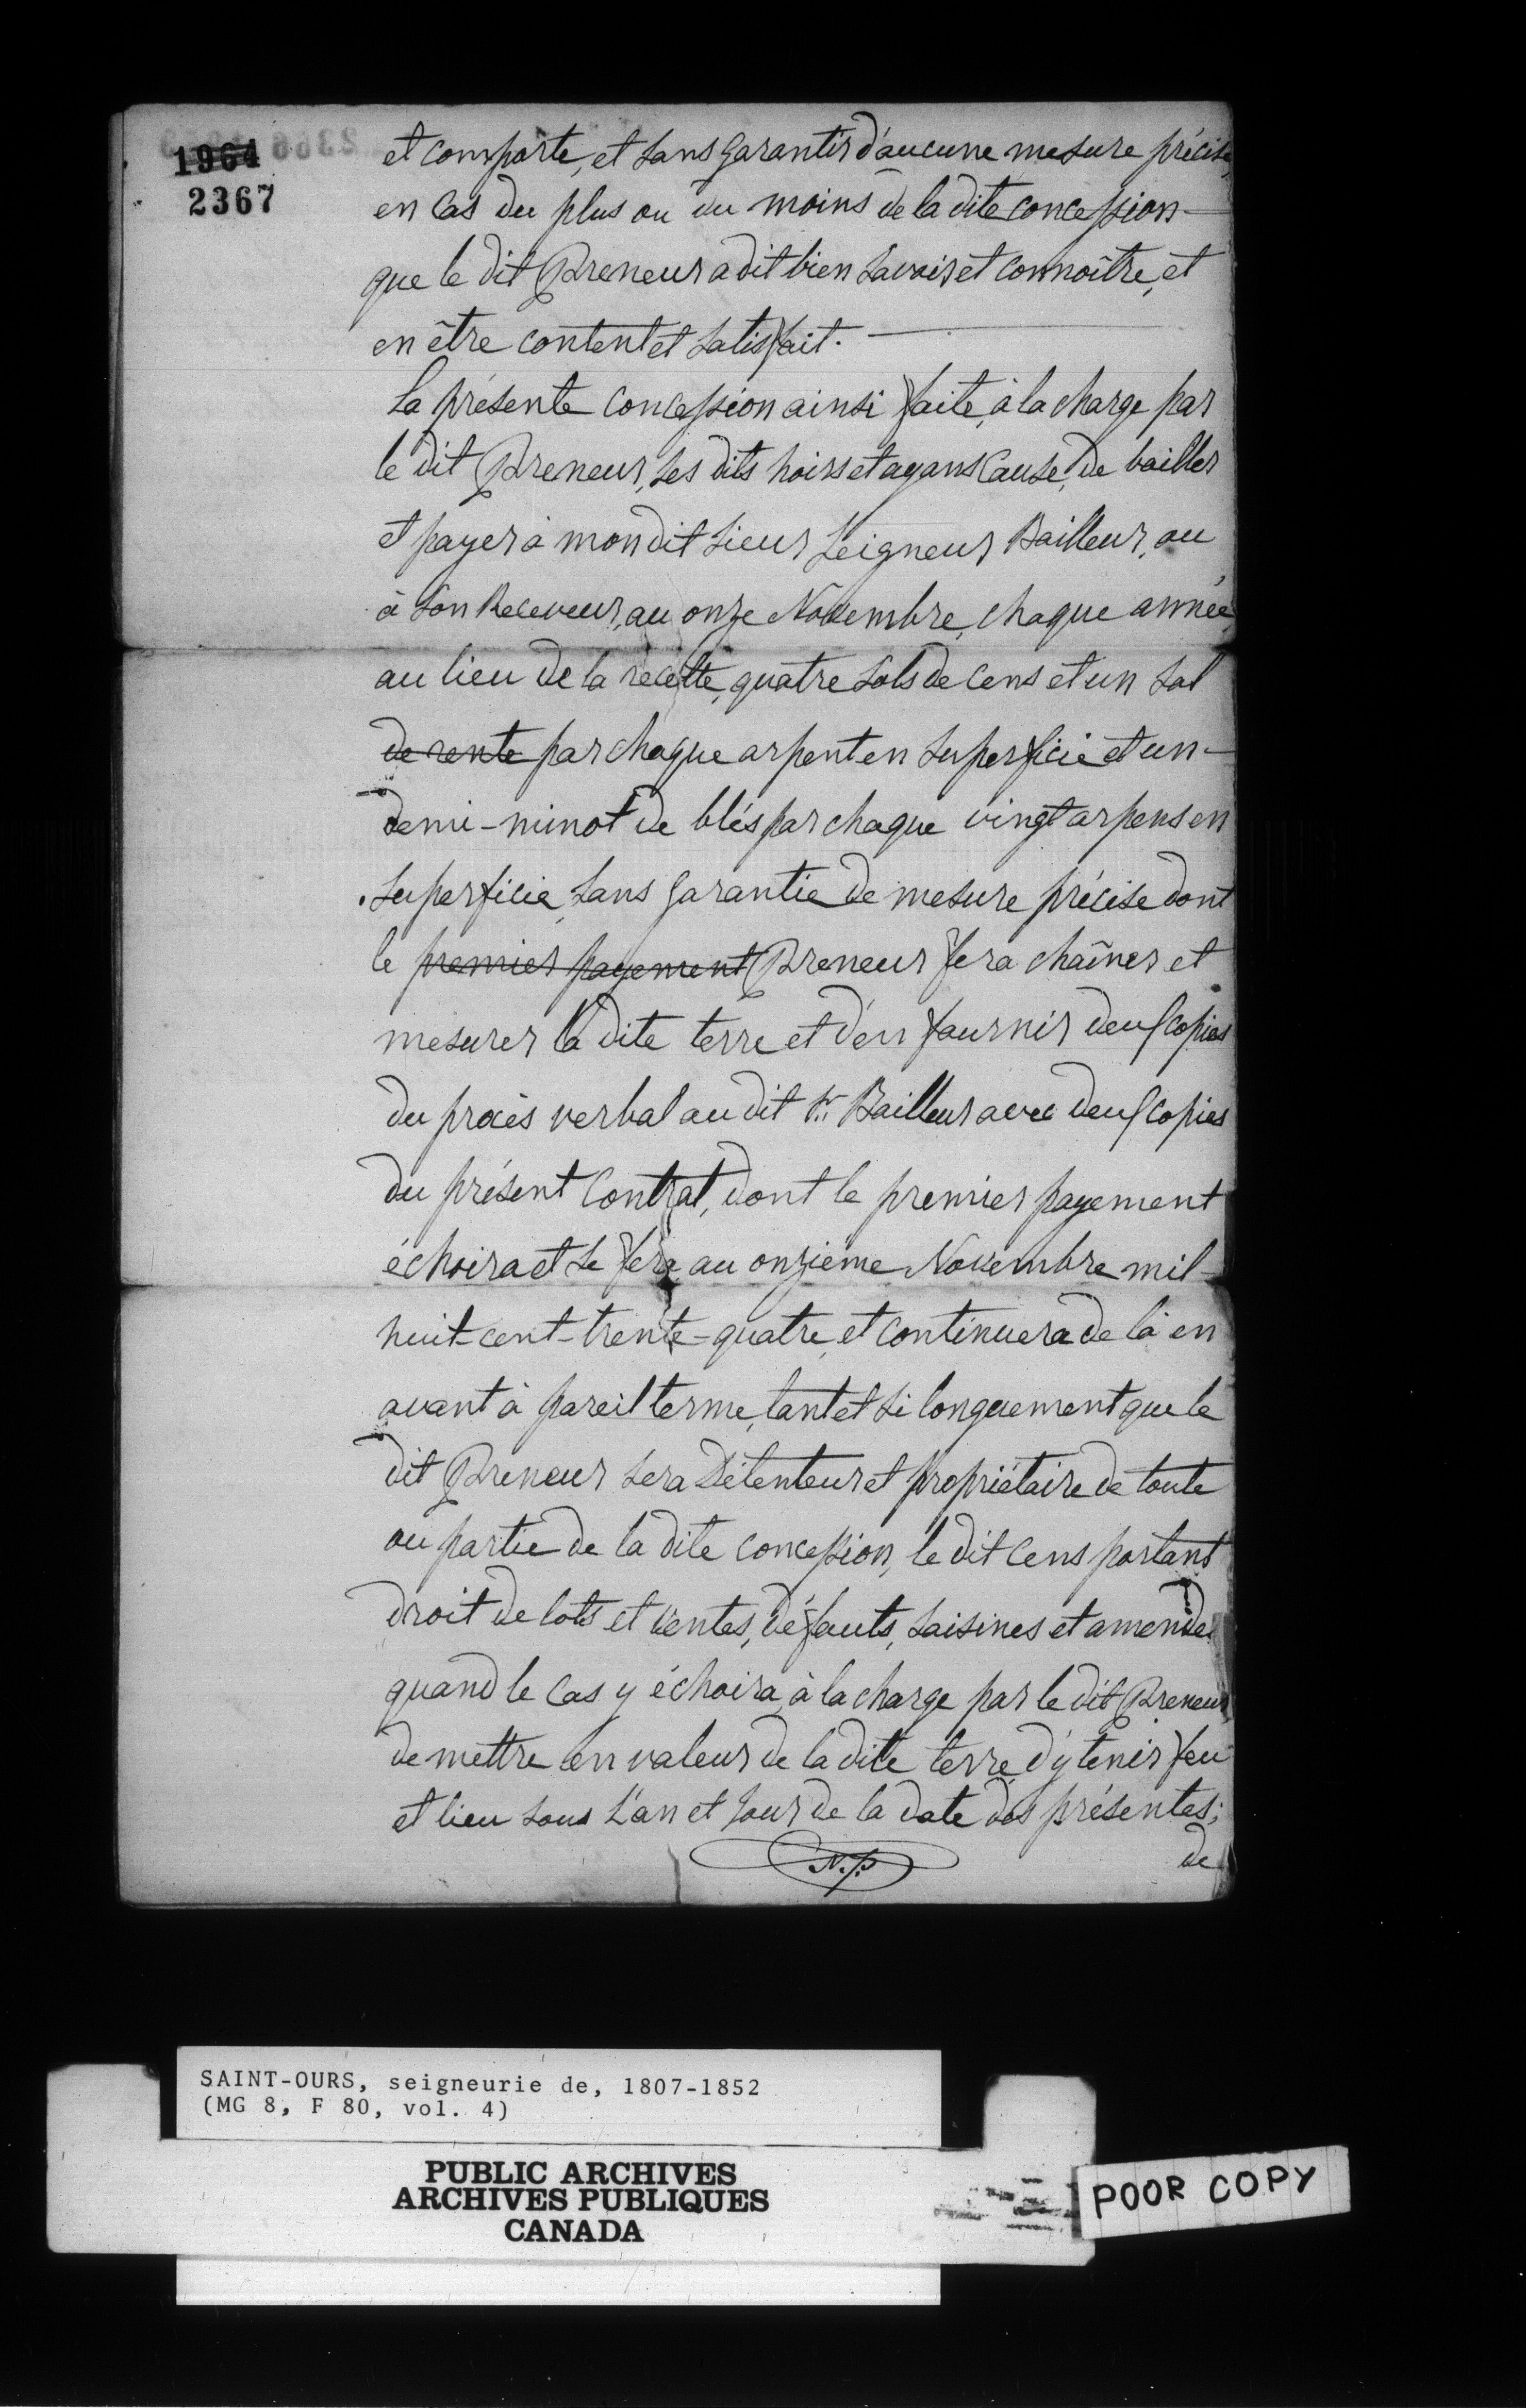 1964
2367
et comporte, et sans garantir d'aucune mesure précise,
en cas du plus ou du moins de la dite concession
que le dit Preneur a dit bien savoir et connoître, et
en être content et satisfait.
La présente concession ainsi faite, à la charge par
le dit Preneur, ses dits hoirs et ayans cause, de bailler
et payer à mon dit sieur Seigneur Bailleur, ou
à son Receveur, au onze Novembre, chaque année,
au lieu de la recette, quatre sols de cens et un sol
de rente par chaque arpent en superficie et un
demi-minot de blés par chaque vingt arpens en
superficie, sans garantie de mesure précise dont
le premier payement Preneur fera chaîner et
mesurer la dite terre et d'en fournir deux copies
du procès verbal au dit Sr. Bailleur avec deux copies
du présent Contrat, dont le premier payement
échoira et se fera au onzième Novembre mil-
huit-cent-trente-quatre, et continuera de là en
avant à pareil terme, tant et si longuement que le
dit Preneur sera Détenteur et propriétaire de toute
ou partie de la dite concession, le dit cens portant
droit de lots et ventes, défauts, saisines et amende
quand le cas y échoira, à la charge par le dit Preneur
de mettre en valeur de la dite terre, d'y tenir feu
et lieu sous l'an et jour de la date des présentes;
N.P.
de
SAINT-OURS, seigneurie de, 1807-1852
(MG 8, F 80, vol. 4)
PUBLIC ARCHIVES
ARCHIVES PUBLIQUES
CANADA
POOR COPY